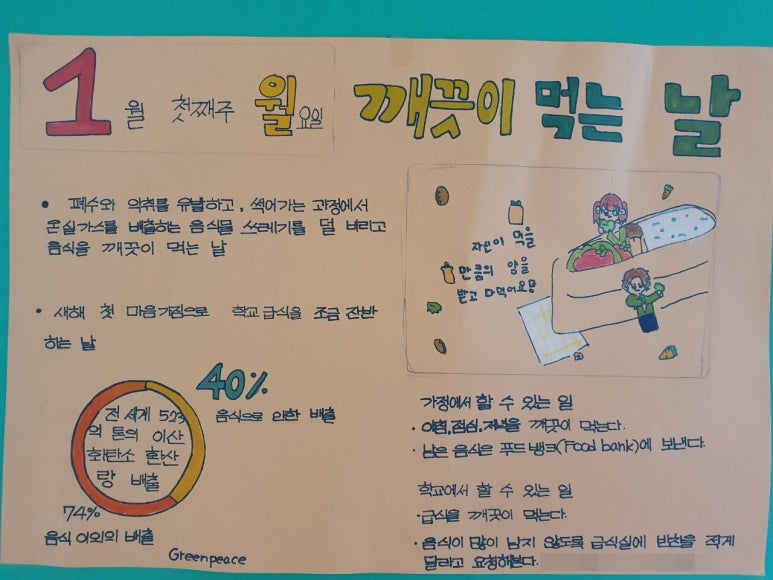 1월 첫째주 월요일
깨끗이 먹는 날
• 폐수와 악취를 유발하고, 썩어가는 과정에서
온실가스를 배출하는 음식물 쓰레기를 덜 버리고
음식을 깨끗이 먹는 날
• 새해 첫 마음가짐으로 학교 급식을 조금 잔반
하는 날
40%
음식으로 인한 배출
전 세계 523
억 톤의 이산
화탄소 환산
량 배출
74%
음식 이외의 배출
Greenpeace
자신이 먹을
만큼의 양을
받고 먹어요
가정에서 할 수 있는 일
· 아침, 점심, 저녁을 깨끗이 먹는다.
· 남은 음식은 푸드 뱅크(Food bank)에 보낸다.
학교에서 할 수 있는 일
· 급식을 깨끗이 먹는다.
· 음식이 많이 남지 않도록 급식실에 반찬을 적게
달라고 요청해본다.